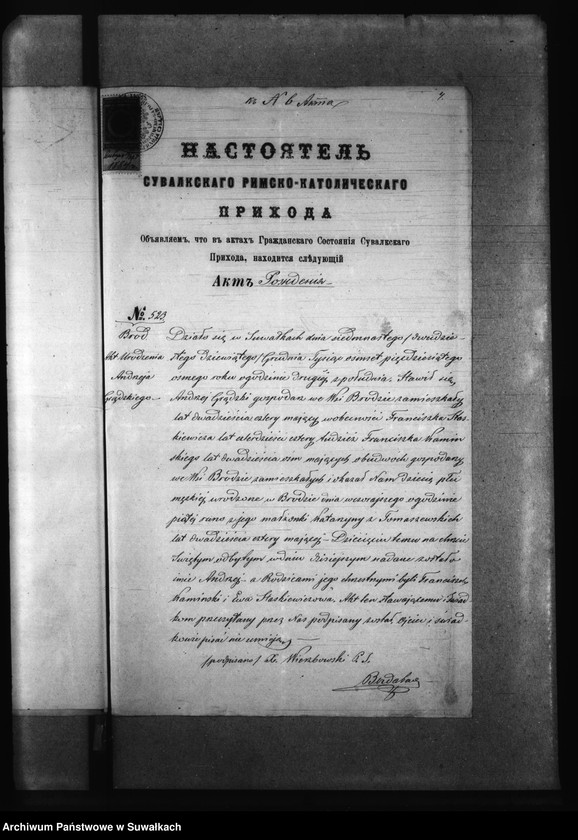 къ N 6 Акта
4.
НАСТОЯТЕЛЬ
СУВАЛКСКАГО РИМСКО-КАТОЛИЧЕСКАГО
ПРИХОДА
Объявляемъ, что въ актахъ Гражданскаго Состоянія Сувалкскаго
Прихода, находится слѣдующій
Актъ Рожденія
№ 523
Bród
Akt Urodzenia
Andrzeja
Grądzkiego
Działo się w Suwałkach dnia siedmnastego / dwudzie-
stego dziewiątego / Grudnia Tysiąc ośmset pięćdziesiątego
osmego roku o godzinie drugiej z południa. Stawił się
Andrzej Grądzki gospodarz we Wsi Brodzie zamieszkały
lat dwadzieścia cztery mający w obecności Franciszka Sta-
kiewicza lat czterdzieści cztery tudzież Franciszka Kamin-
skiego lat dwadzieścia osm mających obudwóch gospodarzy
we Wsi Brodzie zamieszkałych i okazał Nam dziecię płci
męzkiej urodzone w Brodzie dnia wczorajszego o godzinie
piątej rano z jego małżonki Katarzyny z Tomaszewskich
lat dwadzieścia cztery mającej. Dziecięciu temu na chrzcie
Świętym odbytym w dniu dzisiejszym nadane zostało
imie Andrzej a Rodzicami jego chrzestnymi byli Franciszek
Kaminski i Ewa Staskiewiczowa. Akt ten stawającemu i świad-
kom przeczytany przez Nas podpisany został, Ojciec i świad-
kowie pisać nie umieją
/podpisano/ X. Wierzbowski